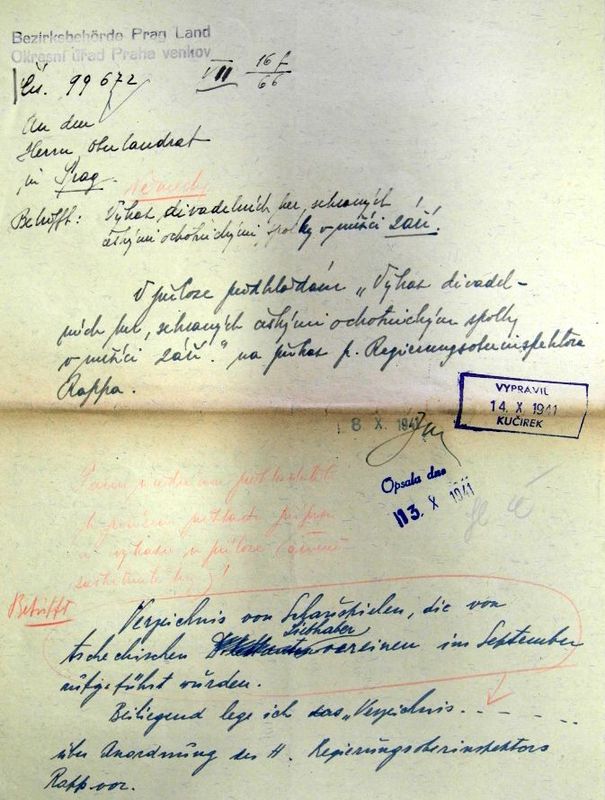 Bezirksbehörde Prag Land
Okresní úřad Praha venkov
Čís. 99672 VII 16 f
66
An den
Herrn Oberlandrat
in Prag.
Německy
Betrifft: Výkaz divadelních her, sehraných
českými ochotnickými spolky v měsíci září.
V příloze předkládám „Výkaz divadel-
ních her, sehraných českými ochotnickými spolky
v měsíci září." na příkaz p. Regierungsoberinspektora
Rappa.
VYPRAVIL
14. X 1941
KUČÍREK
8 X. 1941
Opsala dne
13. X 1941
překladatel
překladu
a výkazu v příloze
Betrifft
Verzeichnis von Schauspielen, die von
tschechischen Liebhaber
vereinen im September
aufgeführt wurden.
Beiliegend lege ich das „Verzeichnis . . . - - -
über Anordnung des H. Regierungsoberinspektors
Rapp vor.